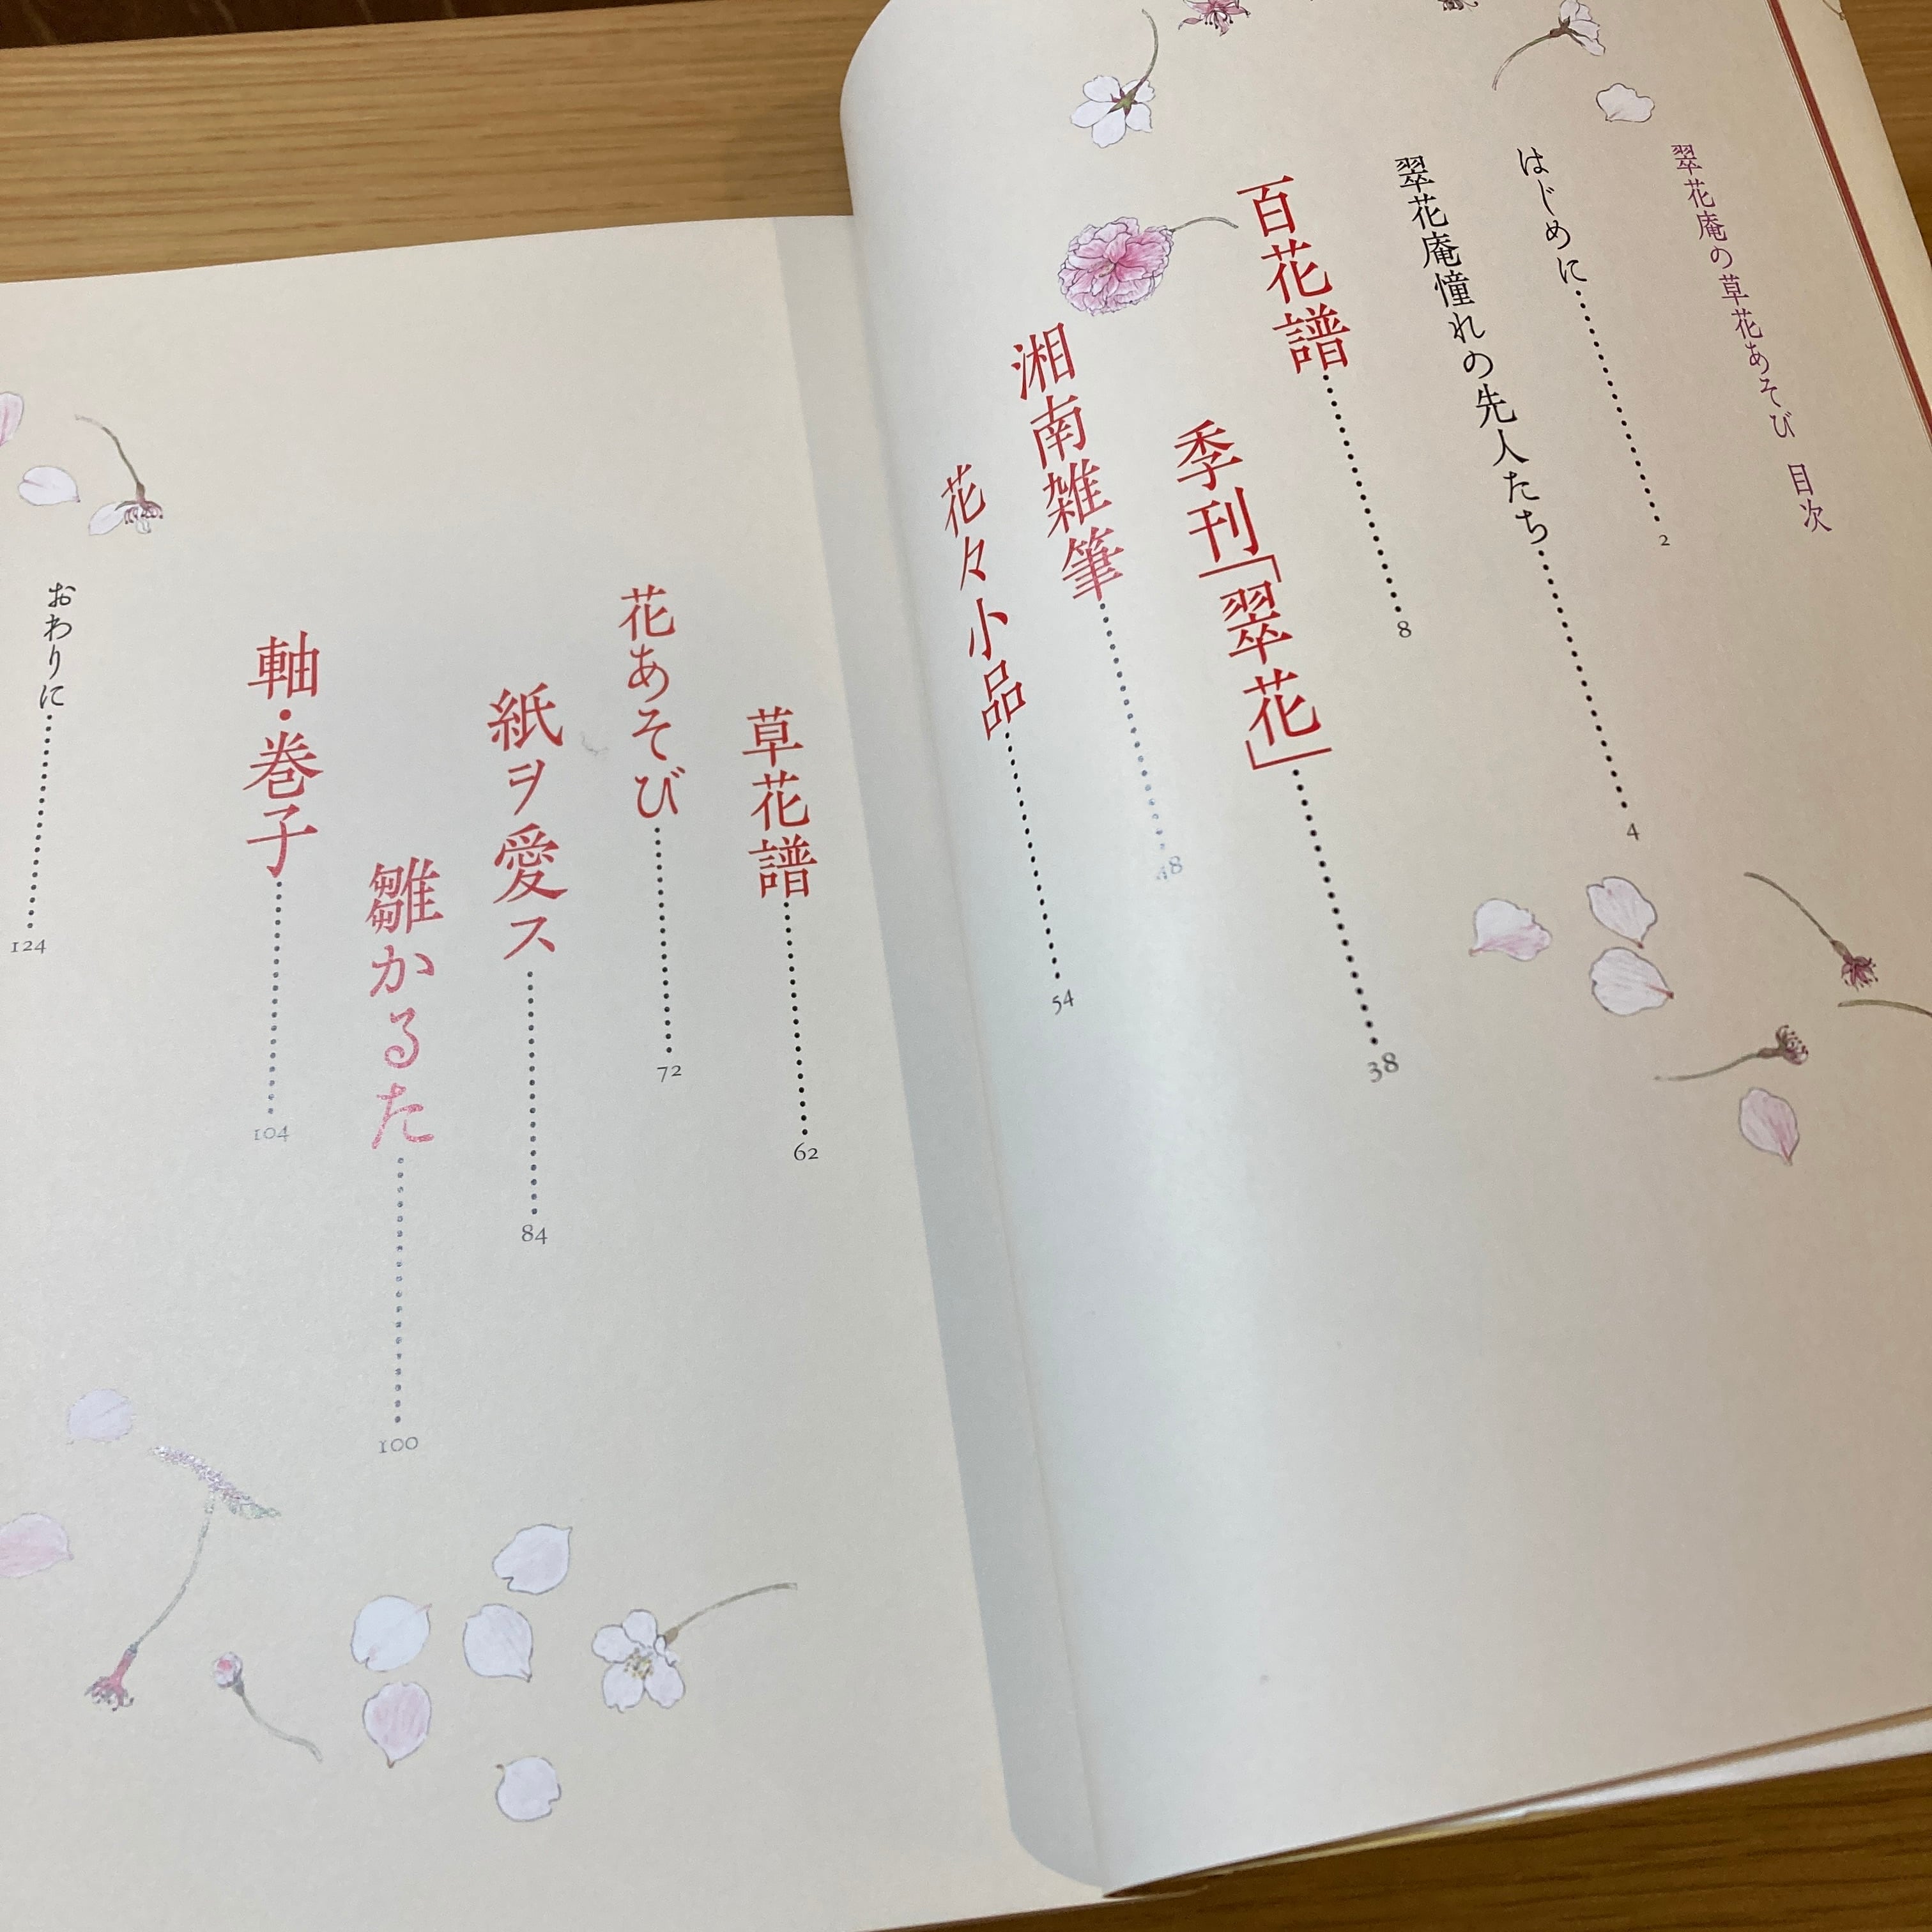 翠花庵の草花あそび 目次
はじめに……………2
翠花庵憧れの先人たち……………4
百花譜……………8
季刊「翠花」……………38
湘南雑筆……………48
花々小品……………54
草花譜……………62
花あそび……………72
紙ヲ愛ス……………84
雛かるた……………100
軸・巻子……………104
おわりに……………124